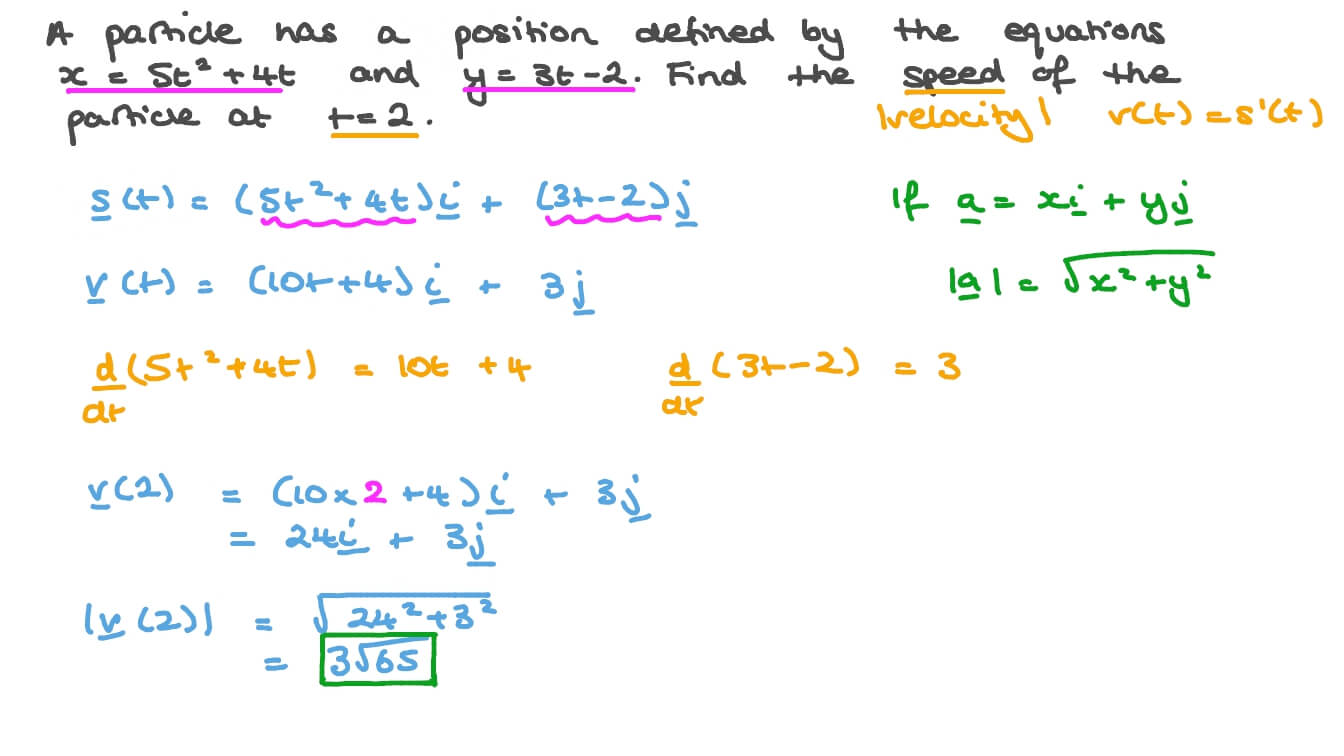 A particle has a position defined by the equations
x = 5t² + 4t and y = 3t - 2. Find the speed of the
particle at t = 2.
|velocity| v(t) = s'(t)
s(t) = (5t² + 4t)i + (3t - 2)j
If a = xi + yj
v(t) = (10t + 4)i + 3j
|a| = √(x² + y²)
d/dt (5t² + 4t) = 10t + 4
d/dt (3t - 2) = 3
v(2) = (10 x 2 + 4)i + 3j
= 24i + 3j
|v(2)| = √(24² + 3²)
= 3√65